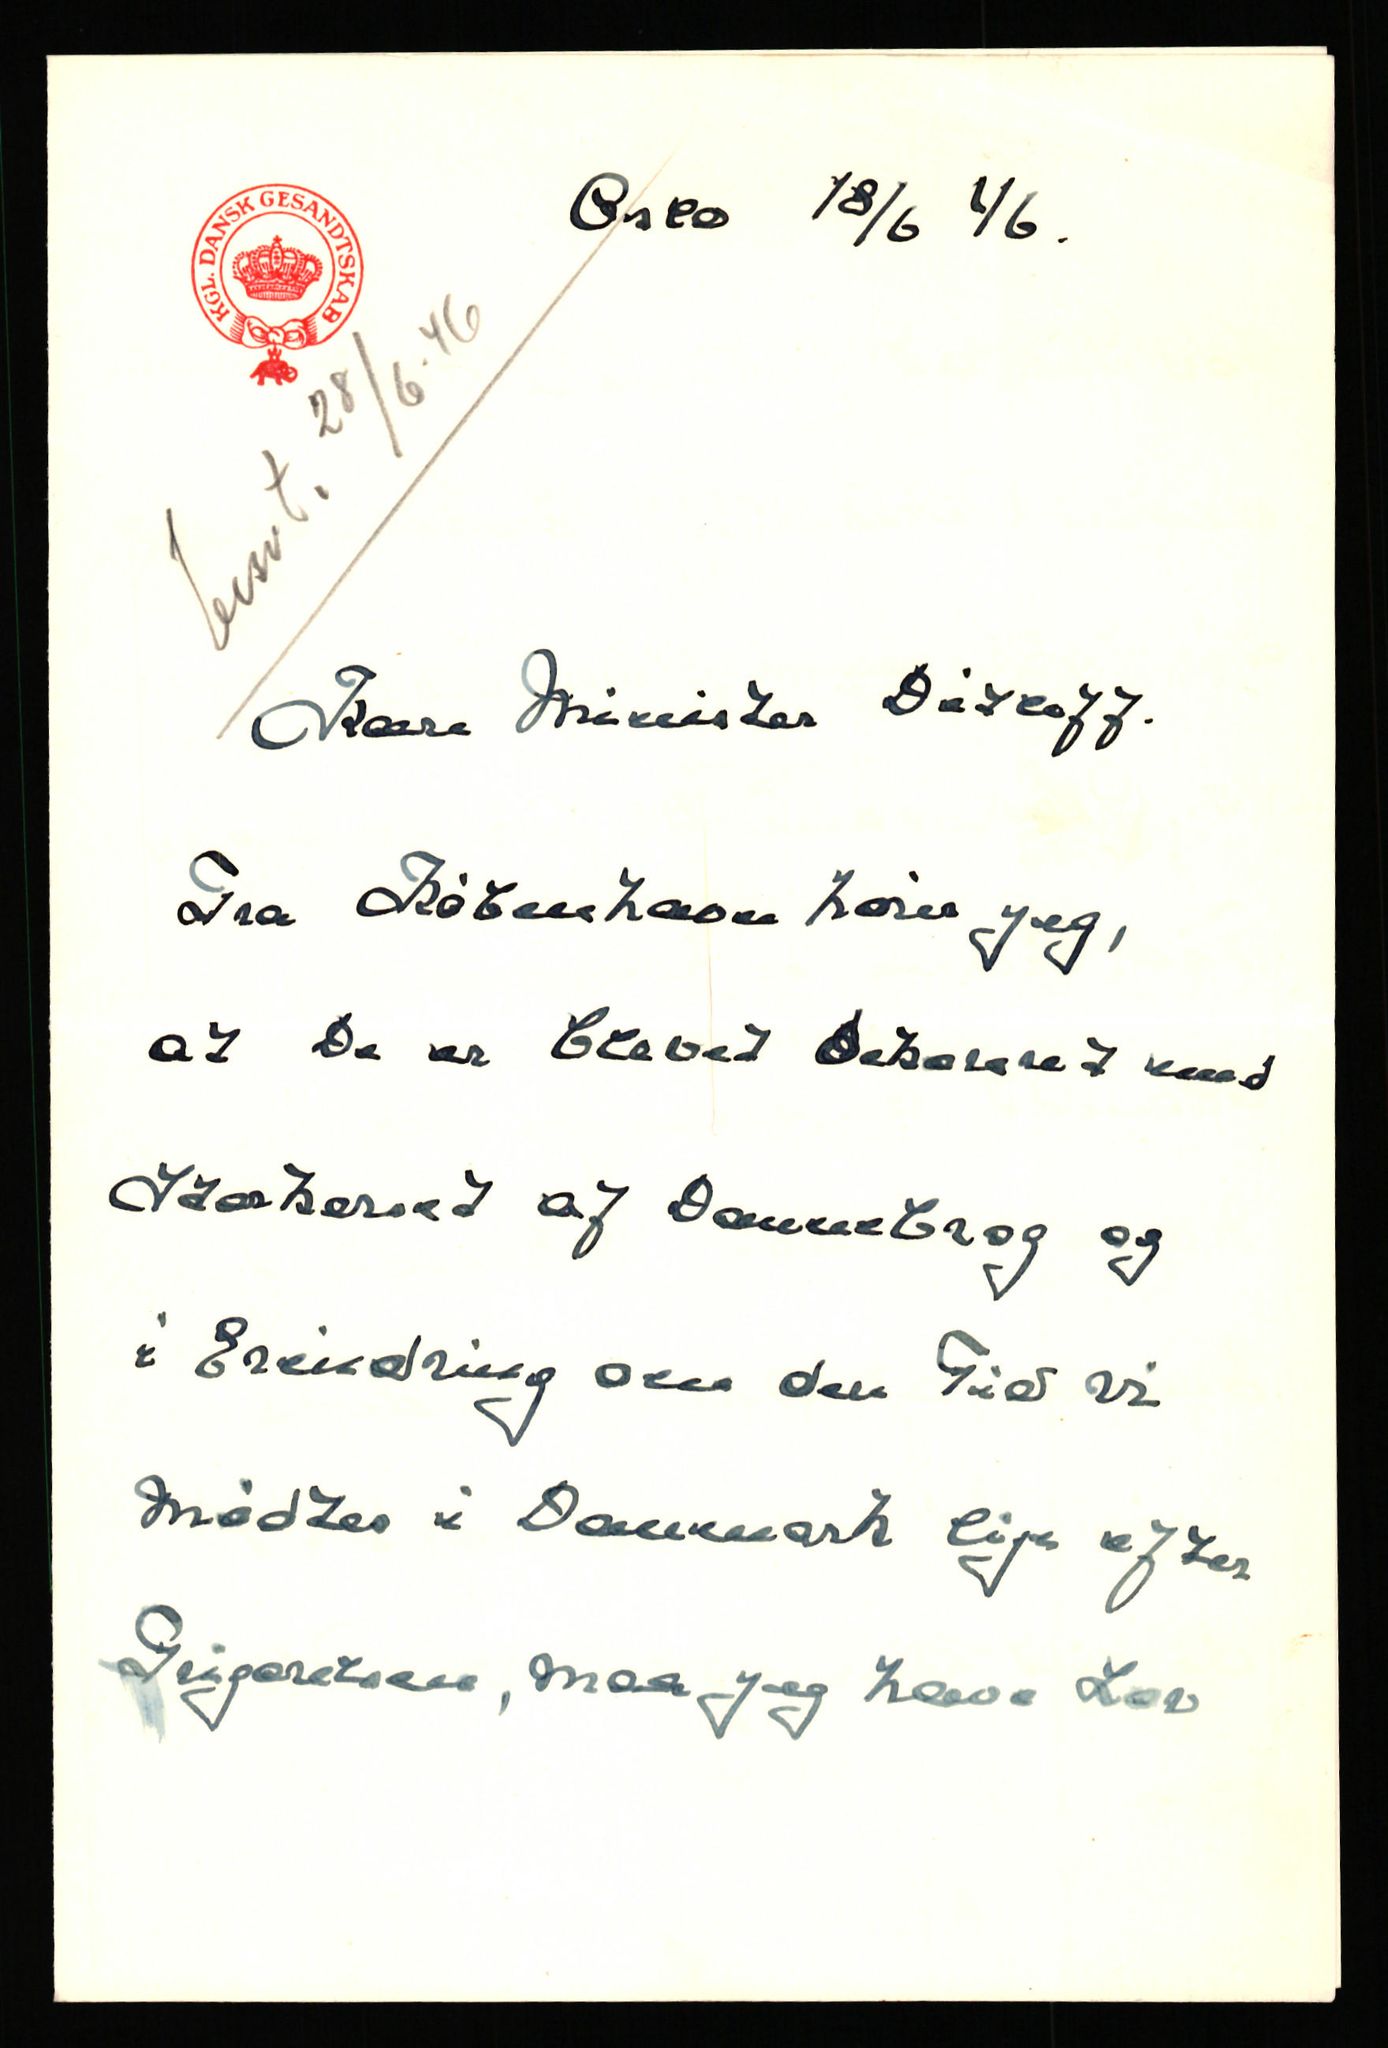 KGL. DANSK GESANDTSKAB
Oslo 18/6 46.
besvt. 28/6.46
Kære Minister Ditleff.
Fra København hører jeg,
at De er blevet dekoreret med
Storkorset af Dannebrog og
i Erindring om den Tid vi
mødtes i Danmark lige efter
Frigørelsen, maa jeg have Lov